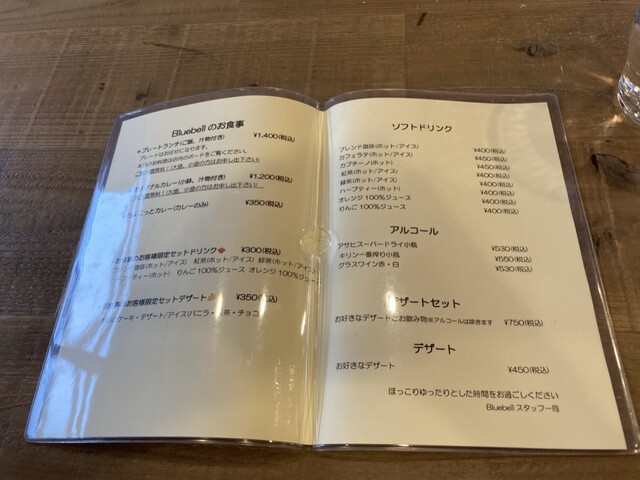 Bluebell のお食事
*プレートランチ(ご飯、汁物付き) ¥1,400(税込)
プレートはお任せになります。
店内のボードをご覧ください。
無料！(大盛、小盛の方はお申し出下さい)
ナルカレー(小鉢、汁物付き) ¥1,200(税込)
無料！(大盛、小盛の方はお申し出下さい)
こっとカレー(カレーのみ) ¥350(税込)
のお客様限定セットドリンク ¥300(税込)
珈琲(ホット/アイス) 紅茶(ホット/アイス) 緑茶(ホット/アイス)
ティー(ホット) りんご 100%ジュース オレンジ 100%ジュース
お客様限定セットデザート ¥350(税込)
ケーキ・デザート/アイス(バニラ・ 茶・チョコ
ソフトドリンク
ブレンド珈琲(ホット/アイス) ¥400(税込)
カフェラテ(ホット/アイス) ¥450(税込)
カプチーノ(ホット) ¥450(税込)
紅茶(ホット/アイス) ¥400(税込)
緑茶(ホット/アイス) ¥400(税込)
ハーブティー(ホット) ¥400(税込)
オレンジ 100%ジュース ¥400(税込)
りんご 100%ジュース ¥400(税込)
アルコール
アサヒスーパードライ小瓶 ¥530(税込)
キリン一番搾り小瓶 ¥550(税込)
グラスワイン赤・白 ¥530(税込)
デザートセット
お好きなデザートとお飲み物※アルコールは除きます ¥750(税込)
デザート
お好きなデザート ¥450(税込)
ほっこりゆったりとした時間をお過ごしください
Bluebell スタッフ一同